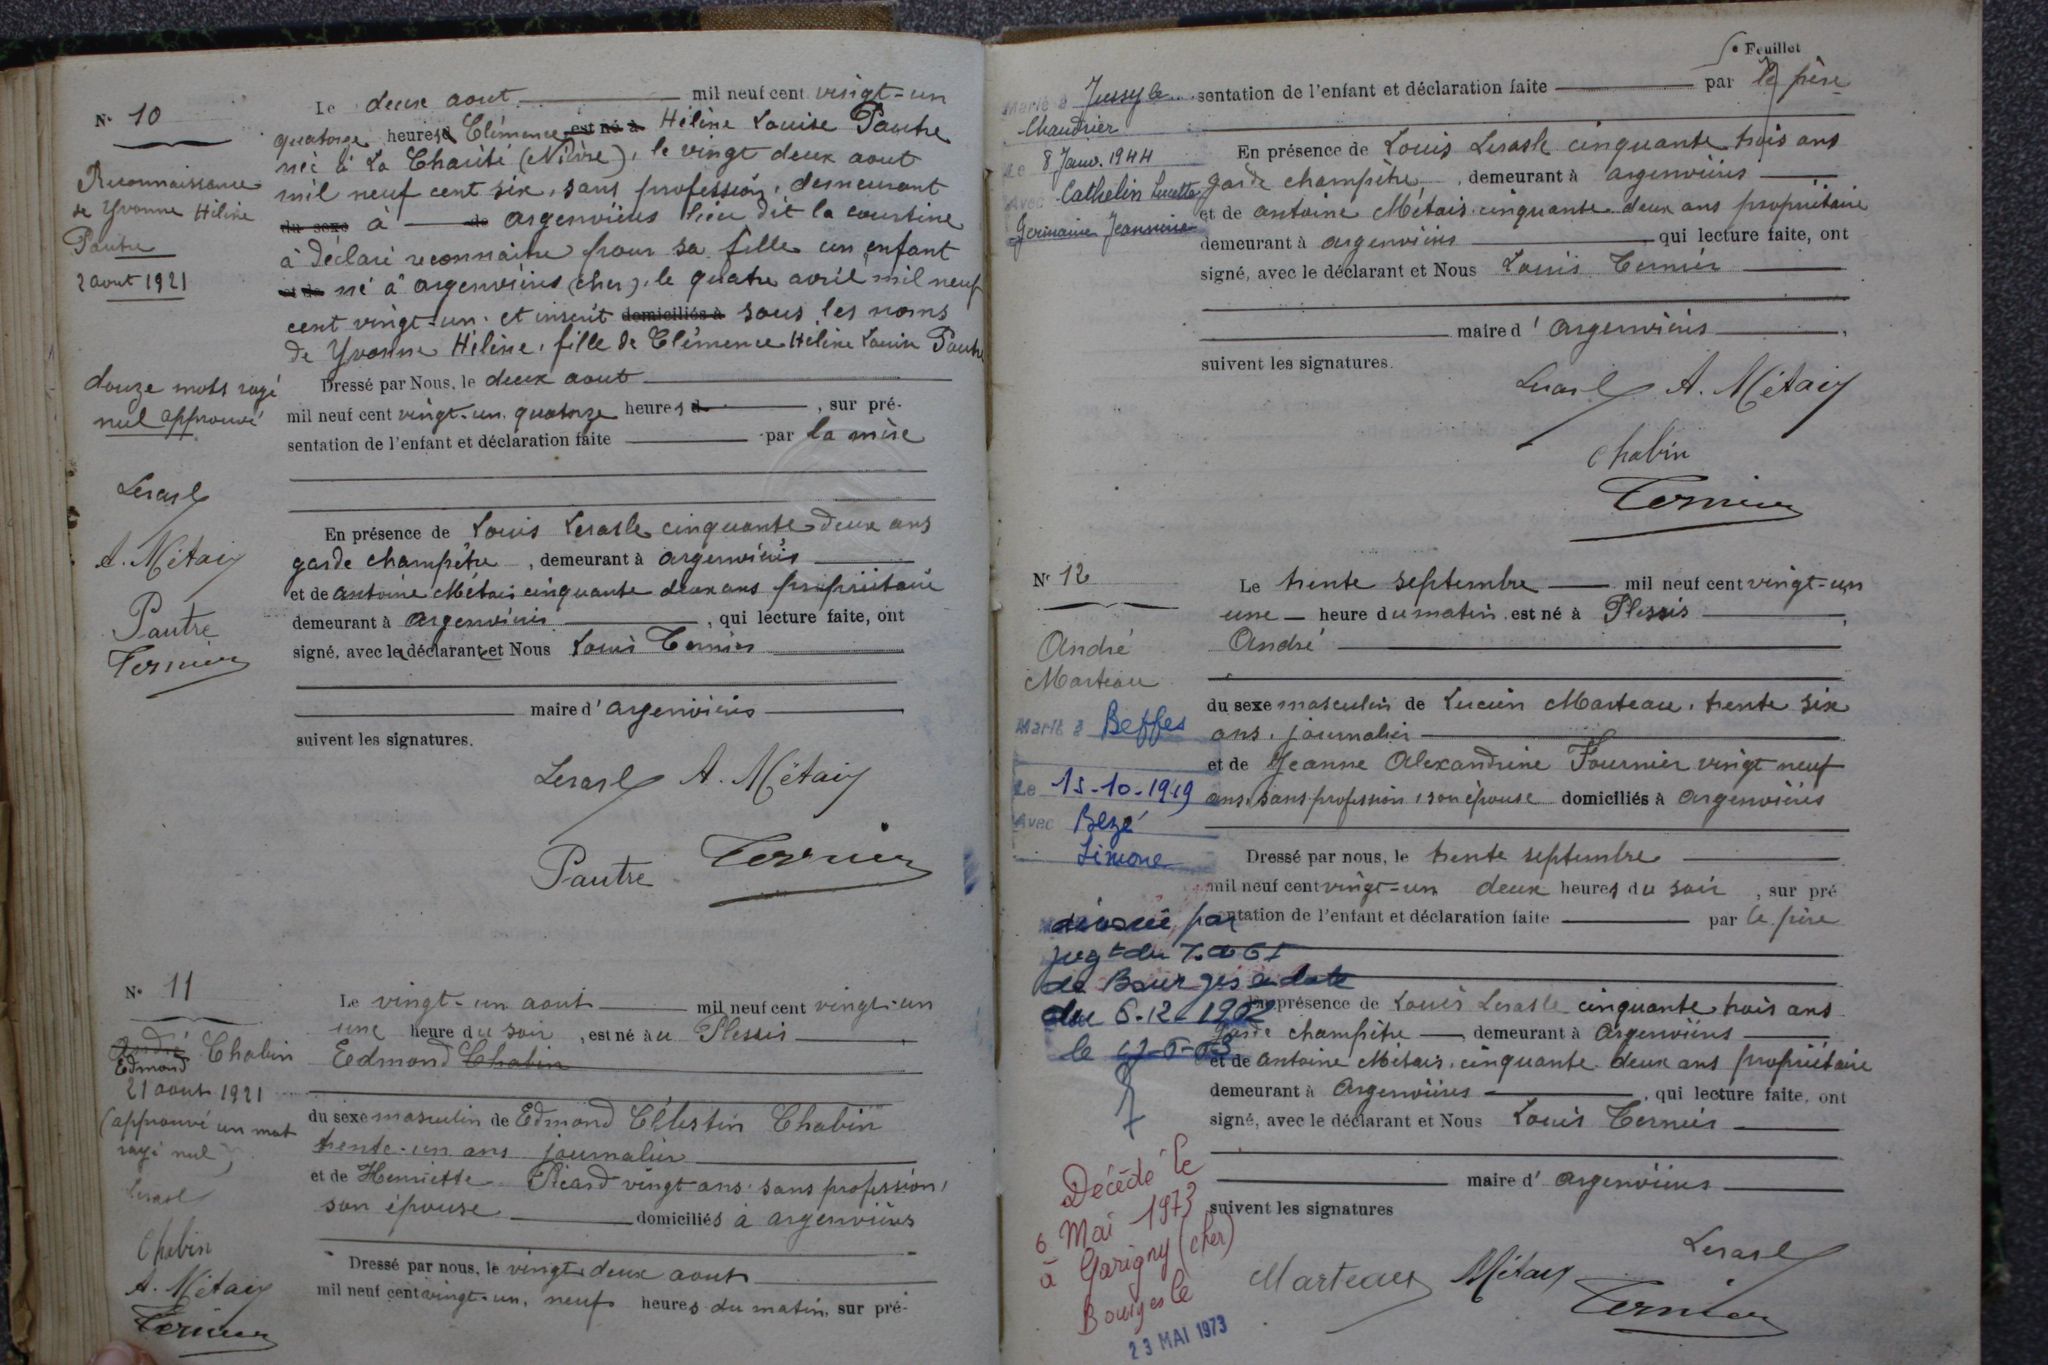 N° 10
Reconnaissance
de Yvonne Hélène
Pautre
2 aout 1921
douze mots rayé
nul approuvé
Lerasle
A. Métais
Pautre
Ternier
Le deux aout mil neuf cent vingt-un
quatorze heures Clémence est né à Hélène Louise Pautre
née à La Charité (Nièvre), le vingt deux aout
mil neuf cent six, sans profession, demeurant
du sexe à de argenvières lieu dit la courtine
à déclaré reconnaitre pour sa fille un enfant
et de né à argenvières (cher), le quatre avril mil neuf
cent vingt-un. et inscrit domiciliés à sous les noms
de Yvonne Hélène, fille de Clémence Hélène Louise Pautre
Dressé par Nous, le deux aout
mil neuf cent vingt-un, quatorze heures d , sur pré-
sentation de l'enfant et déclaration faite par la mère
En présence de Louis Lerasle cinquante deux ans
garde champêtre , demeurant à argenvières
et de antoine Métais cinquante deux ans propriétaire
demeurant à argenvières , qui lecture faite, ont
signé, avec le déclarant et Nous Louis Ternier
maire d'argenvières
suivent les signatures.
Lerasle A. Métais
Pautre Ternier
N° 11
André Chabin
Edmond
21 aout 1921
(approuvé un mot
rayé nul)
Lerasle
Chabin
A. Métais
Ternier
Le vingt-un aout mil neuf cent vingt-un
une heure du soir , est né au Plessis
Edmond Chabin
du sexe masculin de Edmond Célestin Chabin
trente-un ans journalier
et de Henriette Picard vingt ans sans profession,
son épouse domiciliés à argenvières
Dressé par nous, le vingt deux aout
mil neuf cent vingt-un, neuf heures du matin, sur pré-
Feuillet
Marié à Jussy le
Chaudrier
Le 8 Janv. 1944
Avec Cathelin Lucette
Germaine Jeannine
sentation de l'enfant et déclaration faite par le père
En présence de Louis Lerasle cinquante trois ans
garde champêtre , demeurant à argenvières
et de antoine Métais cinquante deux ans propriétaire
demeurant à argenvières qui lecture faite, ont
signé, avec le déclarant et Nous Louis Ternier
maire d'argenvières ,
suivent les signatures.
Lerasle A. Métais
Chabin
Ternier
N° 12
André
Marteau
Marié à Beffes
Le 15-10-1949
Avec Bezé
Simone
divorcé par
jugt du T. de G I
de Bourges à date
du 6-12-1962
Décédé le
6 Mai 1973
à Garigny (Cher)
Bourges le
23 MAI 1973
Le trente septembre mil neuf cent vingt-un
une heure du matin, est né à Plessis
André
du sexe masculin de Lucien Marteau, trente six
ans, journalier
et de Jeanne Alexandrine Fournier vingt neuf
ans, sans profession, son épouse domiciliés à argenvières
Dressé par nous, le trente septembre
mil neuf cent vingt-un deux heures du soir , sur pré
entation de l'enfant et déclaration faite par le père
En présence de Louis Lerasle cinquante trois ans
garde champêtre , demeurant à argenvières
et de antoine Métais, cinquante deux ans propriétaire
demeurant à argenvières , qui lecture faite, ont
signé, avec le déclarant et Nous Louis Ternier
maire d'argenvières
suivent les signatures
Lerasle
Marteau Métais
Ternier